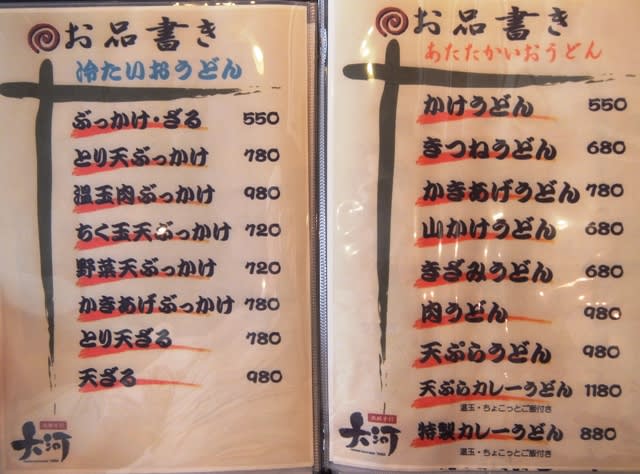 お品書き
冷たいおうどん
ぶっかけ・ざる 550
とり天ぶっかけ 780
温玉肉ぶっかけ 980
ちく玉天ぶっかけ 720
野菜天ぶっかけ 720
かきあげぶっかけ 780
とり天ざる 780
天ざる 980
大河
お品書き
あたたかいおうどん
かけうどん 550
きつねうどん 680
かきあげうどん 780
山かけうどん 680
きざみうどん 680
肉うどん 980
天ぷらうどん 980
天ぷらカレーうどん 1180
温玉・ちょこっとご飯付き
特製カレーうどん 880
温玉・ちょこっとご飯付き
大河